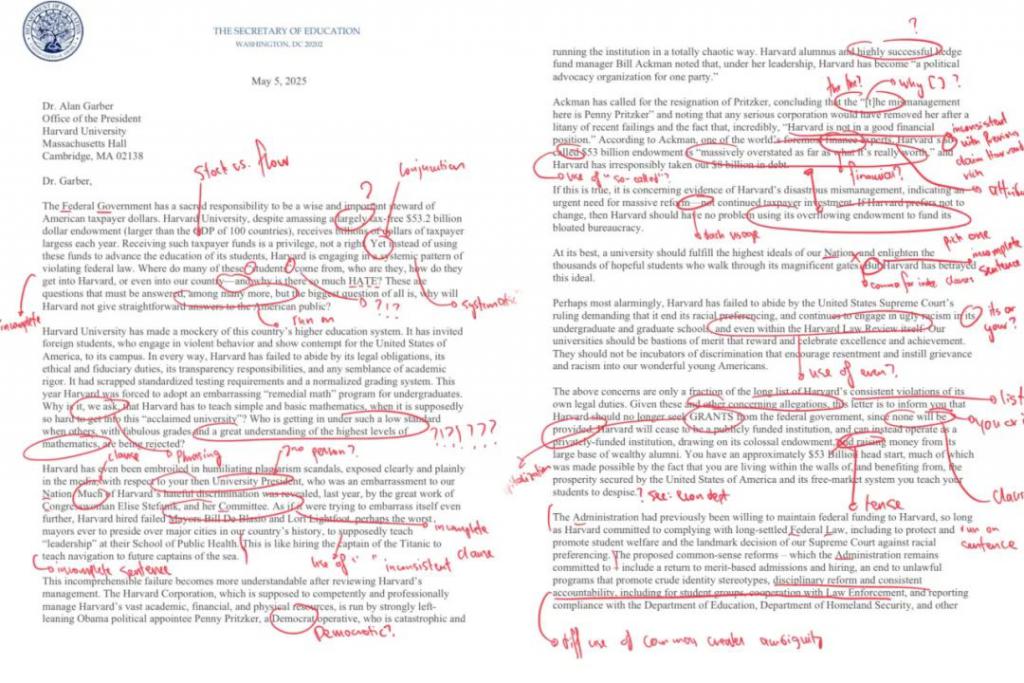 THE SECRETARY OF EDUCATION
WASHINGTON, DC 20202
May 5, 2025
Dr. Alan Garber
Office of the President
Harvard University
Massachusetts Hall
Cambridge, MA 02138
Dr. Garber,
stock vs. flow
conjunction
?
The Federal Government has a sacred responsibility to be a wise and important steward of
American taxpayer dollars. Harvard University, despite amassing a largely tax-free $53.2 billion
dollar endowment (larger than the GDP of 100 countries), receives billions of dollars of taxpayer
largess each year. Receiving such taxpayer funds is a privilege, not a right. Yet instead of using
these funds to advance the education of its students, Harvard is engaging in a systemic pattern of
violating federal law. Where do many of these students come from, who are they, how do they
get into Harvard, or even into our country—and why is there so much HATE? These are
questions that must be answered, among many more, but the biggest question of all is, why will
Harvard not give straightforward answers to the American public?
systematic
incomplete
run on
?!?
Harvard University has made a mockery of this country's higher education system. It has invited
foreign students, who engage in violent behavior and show contempt for the United States of
America, to its campus. In every way, Harvard has failed to abide by its legal obligations, its
ethical and fiduciary duties, its transparency responsibilities, and any semblance of academic
rigor. It had scrapped standardized testing requirements and a normalized grading system. This
year Harvard was forced to adopt an embarrassing "remedial math" program for undergraduates.
Why is it, we ask, that Harvard has to teach simple and basic mathematics, when it is supposedly
so hard to get into this "acclaimed university"? Who is getting in under such a low standard
when others, with fabulous grades and a great understanding of the highest levels of
mathematics, are being rejected?
?!?!????
clause
Phrasing
no person?
Harvard has even been embroiled in humiliating plagiarism scandals, exposed clearly and plainly
in the media, with respect to your then University President, who was an embarrassment to our
Nation. Much of Harvard's hateful discrimination was revealed, last year, by the great work of
Congresswoman Elise Stefanik, and her Committee. As if it were trying to embarrass itself even
further, Harvard hired failed Mayors Bill De Blasio and Lori Lightfoot, perhaps the worst
mayors ever to preside over major cities in our country's history, to supposedly teach
"leadership" at their School of Public Health. This is like hiring the captain of the Titanic to
teach navigation to future captains of the sea.
incomplete clause
incomplete sentence
use of " " inconsistent
This incomprehensible failure becomes more understandable after reviewing Harvard's
management. The Harvard Corporation, which is supposed to competently and professionally
manage Harvard's vast academic, financial, and physical resources, is run by strongly left-
leaning Obama political appointee Penny Pritzker, a Democrat operative, who is catastrophic and
Democratic?
?
running the institution in a totally chaotic way. Harvard alumnus and highly successful hedge
fund manager Bill Ackman noted that, under her leadership, Harvard has become "a political
advocacy organization for one party."
the the?
why [ ] ?
Ackman has called for the resignation of Pritzker, concluding that the "[t]he mismanagement
here is Penny Pritzker" and noting that any serious corporation would have removed her after a
litany of recent failings and the fact that, incredibly, "Harvard is not in a good financial
position." According to Ackman, one of the world's foremost finance experts, Harvard's so-
called $53 billion endowment is "massively overstated as far as what it's really worth," and
Harvard has irresponsibly taken on $8 billion in debt.
inconsistent
with previous
claim Harvard
rich
use of "so-called"?
financial?
If this is true, it is concerning evidence of Harvard's disastrous mismanagement, indicating an
urgent need for massive reform—not continued taxpayer investment. If Harvard prefers not to
change, then Harvard should have no problem using its overflowing endowment to fund its
bloated bureaucracy.
dash usage
pick one
At its best, a university should fulfill the highest ideals of our Nation, and enlighten the
thousands of hopeful students who walk through its magnificent gates. But Harvard has betrayed
this ideal.
incomplete
sentence
comma for indep. clauses
Perhaps most alarmingly, Harvard has failed to abide by the United States Supreme Court's
ruling demanding that it end its racial preferencing, and continues to engage in ugly racism in its
undergraduate and graduate schools, and even within the Harvard Law Review itself. Our
universities should be bastions of merit that reward and celebrate excellence and achievement.
They should not be incubators of discrimination that encourage resentment and instill grievance
and racism into our wonderful young Americans.
its or
your?
use of even?
The above concerns are only a fraction of the long list of Harvard's consistent violations of its
own legal duties. Given these and other concerning allegations, this letter is to inform you that
Harvard should no longer seek GRANTS from the federal government, since none will be
provided. Harvard will cease to be a publicly funded institution, and can instead operate as a
privately-funded institution, drawing on its colossal endowment, and raising money from its
large base of wealthy alumni. You have an approximately $53 Billion head start, much of which
was made possible by the fact that you are living within the walls of, and benefiting from, the
prosperity secured by the United States of America and its free-market system you teach your
students to despise.
list
tense
? See: Econ dept
The Administration had previously been willing to maintain federal funding to Harvard, so long
as Harvard committed to complying with long-settled Federal Law, including to protect and
promote student welfare and the landmark decision of our Supreme Court against racial
preferencing. The proposed common-sense reforms – which the Administration remains
committed to – include a return to merit-based admissions and hiring, an end to unlawful
programs that promote crude identity stereotypes, disciplinary reform and consistent
accountability, including for student groups, cooperation with Law Enforcement, and reporting
compliance with the Department of Education, Department of Homeland Security, and other
run on
sentence
diff use of commas creates ambiguity